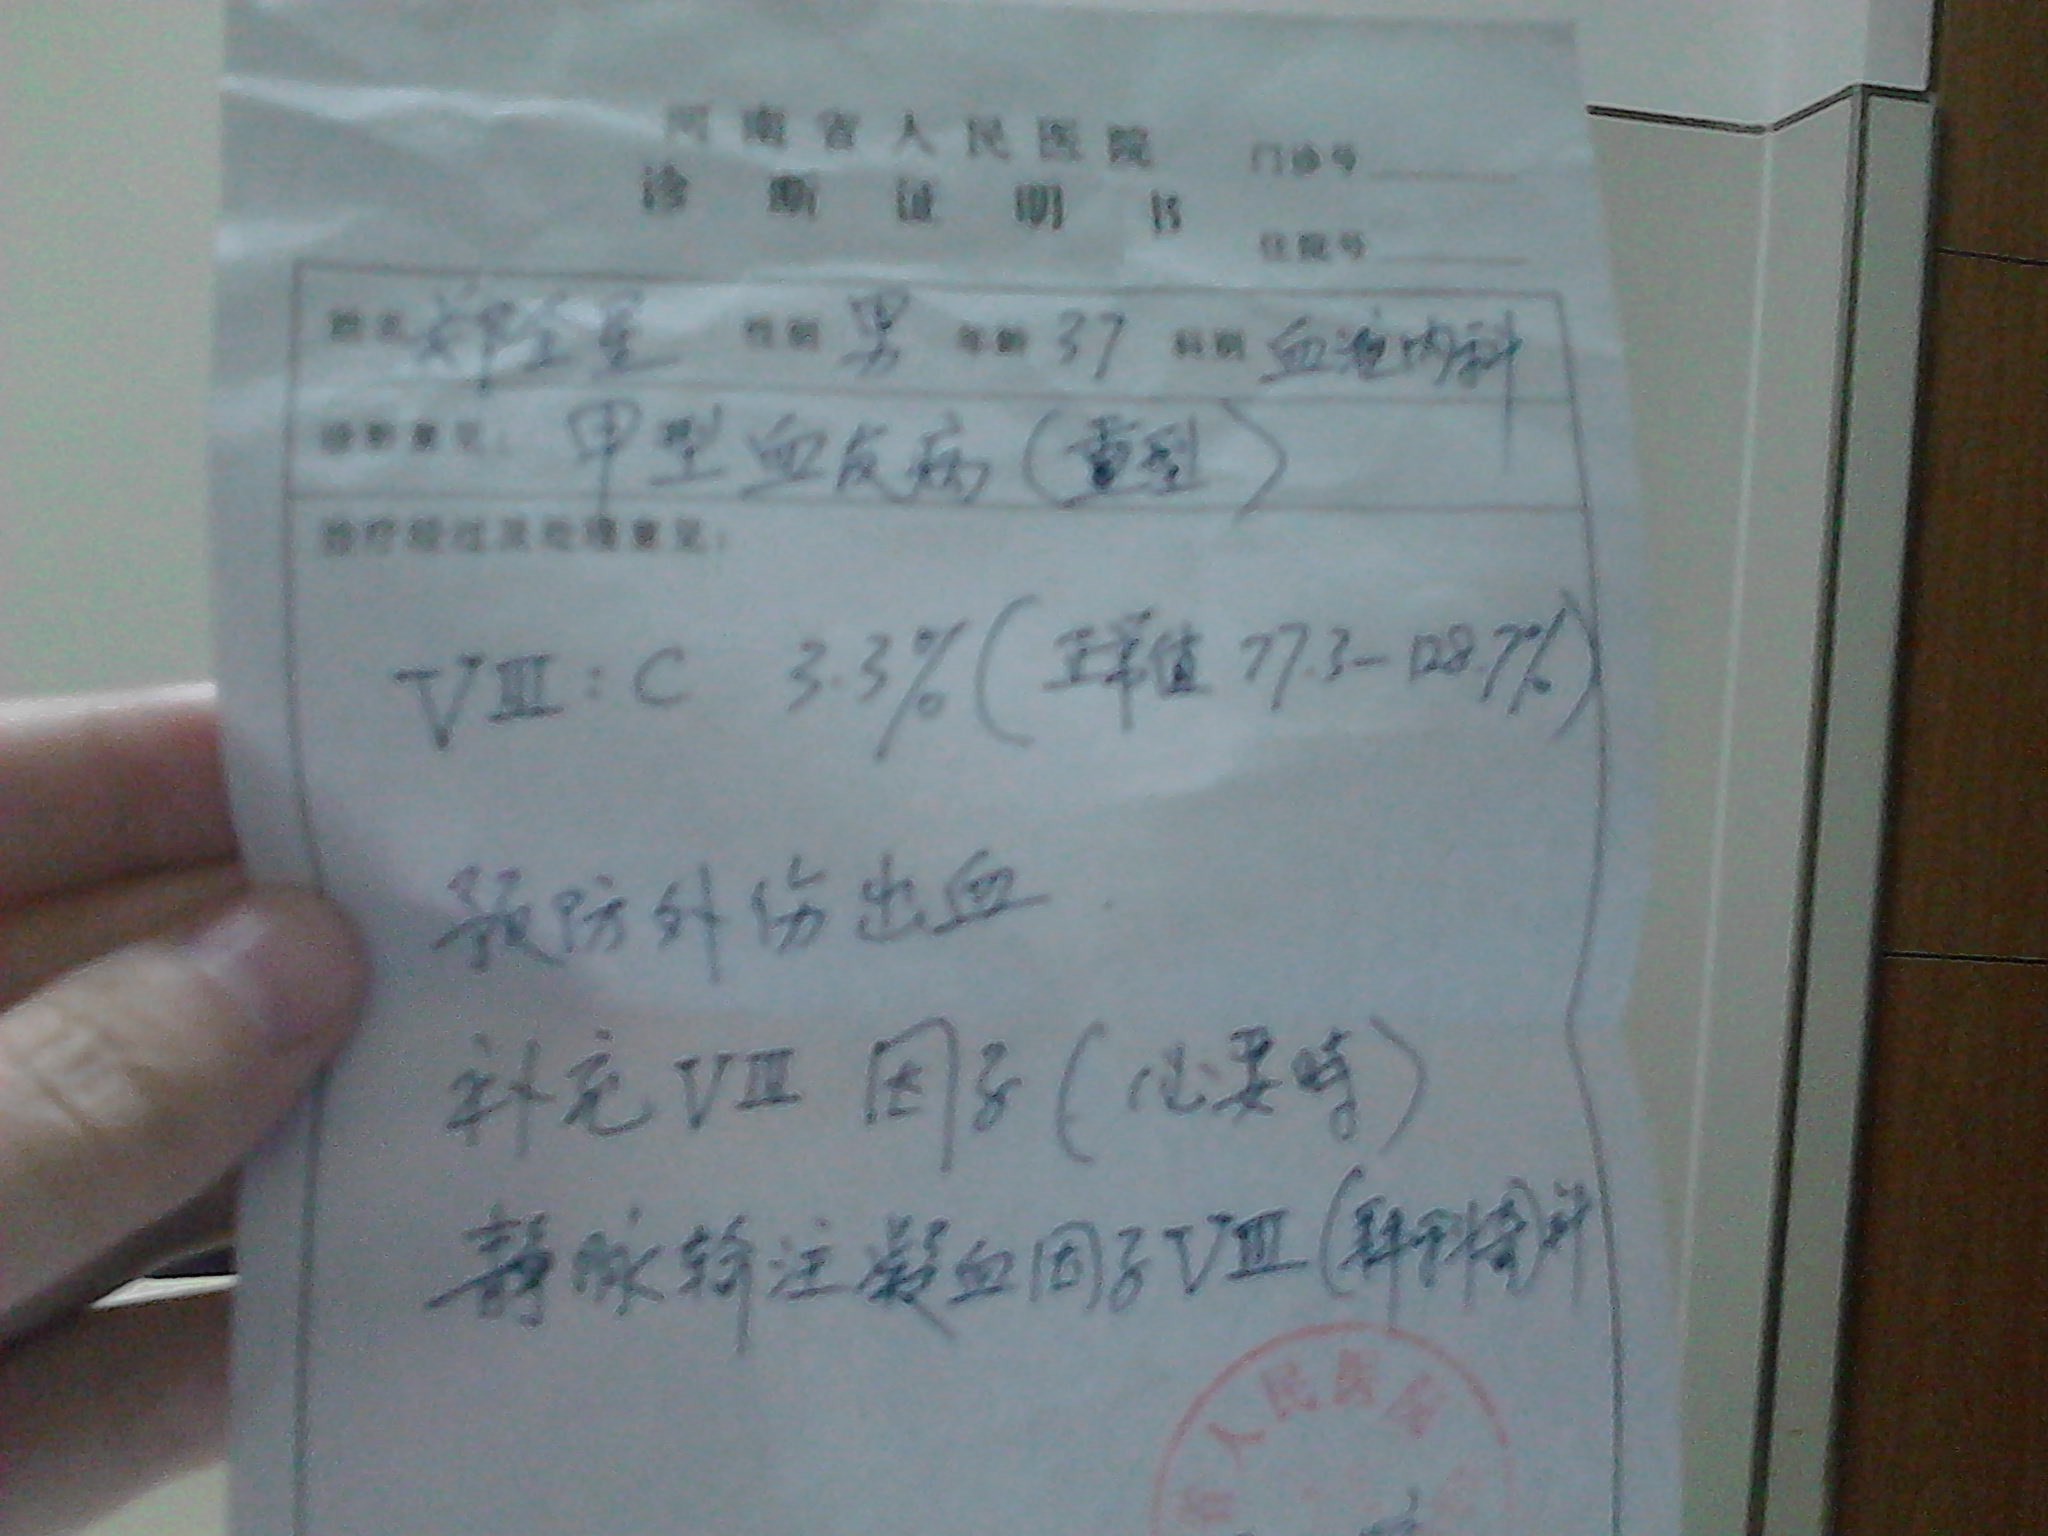 河南省人民医院 门诊号
诊断证明书
住院号
姓名 郑全星 性别 男 年龄 37 科别 血液内科
诊断意见: 甲型血友病(重型)
诊疗经过及处理意见:
VIII:C 3.3%(正常值 77.3-128.7%)
预防外伤出血.
补充VIII因子(必要时)
静脉输注凝血因子VIII(
省人民医院